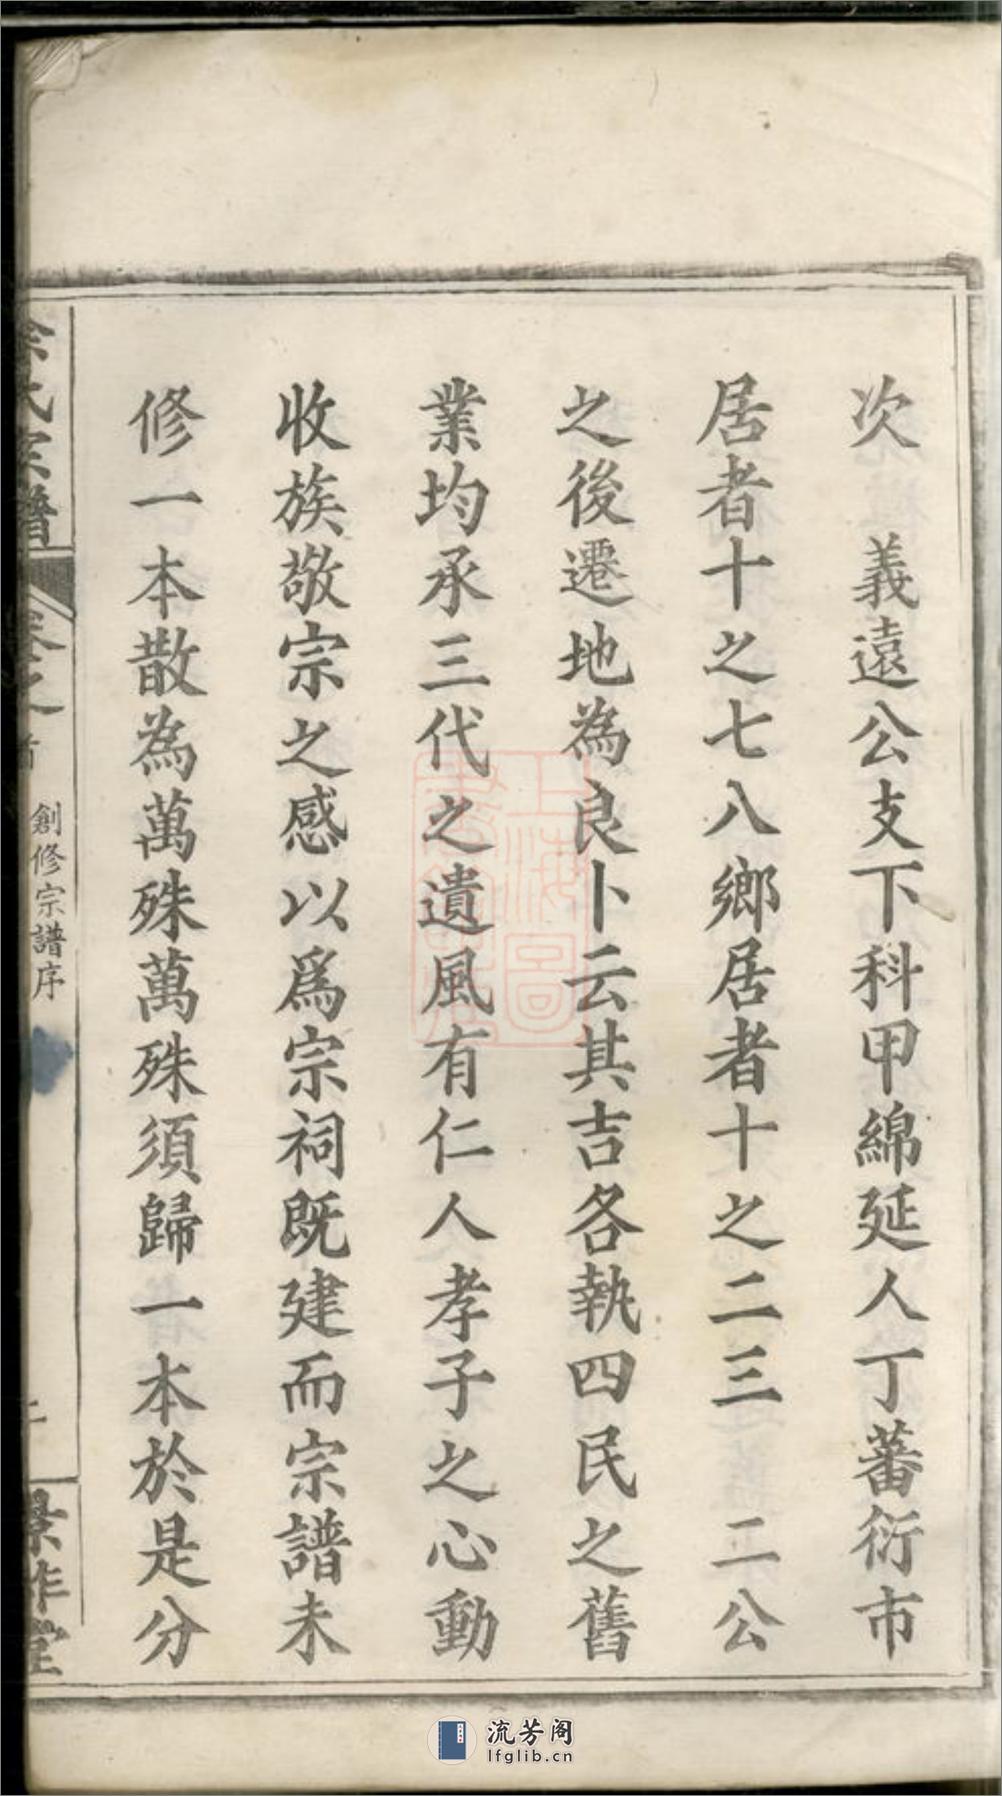 次　義遠公支下科甲綿延人丁蕃衍市
居者十之七八鄉居者十之二三　二公
之後遷地為良卜云其吉各執四民之舊
業均承三代之遺風有仁人孝子之心動
收族敬宗之感以爲宗祠既建而宗譜未
修一本散為萬殊萬殊須歸一本於是分
氏宗譜
卷之首
創修宗譜序
堂
上海圖書館藏
流芳阁
lfglib.cn